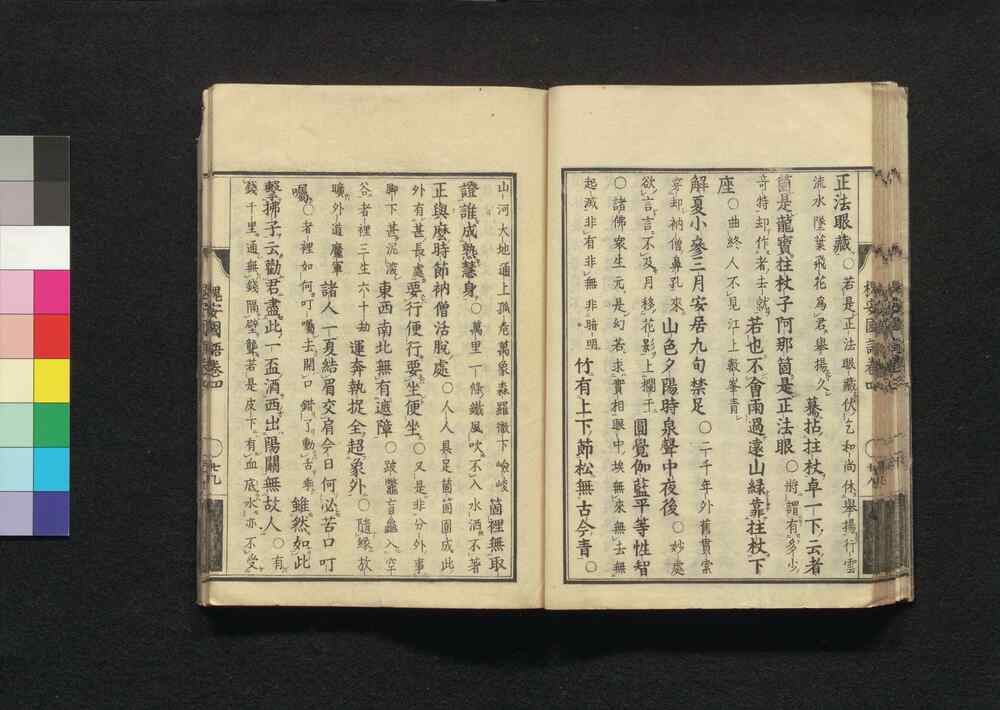 正法眼藏○若是正法眼藏伏乞和尚休擧揚行雲
流水墜葉飛花為君擧揚久
驀拈拄杖卓一下云者
箇是龍寶拄杖子阿那箇是正法眼○將謂有多少
奇特却作者去就
若也不會雨過遠山緑靠拄杖下
座○曲終人不見江上數峯青
解夏小參三月安居九旬禁足○二千年外舊貫索
穿却衲僧鼻孔來
山色夕陽時泉聲中夜後○妙處
欲言言不及月移花影上欄干
圓覺伽藍平等性智
○諸佛衆生元是幻若求實相眼中埃無來無去無
起滅非有非無非暗明
竹有上下節松無古今青○
山河大地通上孤危萬象森羅徹下嶮峻
箇裡無取
證誰成熟慧身○萬里一條鐵風吹不入水洒不著
正與麽時節衲僧活脫處○人人具足箇箇圓成此
外有甚長處
要行便行要坐便坐○又是非分外事
脚下甚泥滾
東西南北無有遮障○跛鼈盲龜入空
谷者裡三生六十劫
運奔執捉全超象外○隨縁放
曠外道魔軍
諸人一夏結眉交肩今日何必苦口叮
嘱○者裡如何叮嘱去開口錯了動舌乖
雖然如此
擊拂子云勸君盡此一盃酒西出陽關無故人○有
錢千里通無錢隔壁聾若是皮下有血底水亦不受
槐安國語卷四